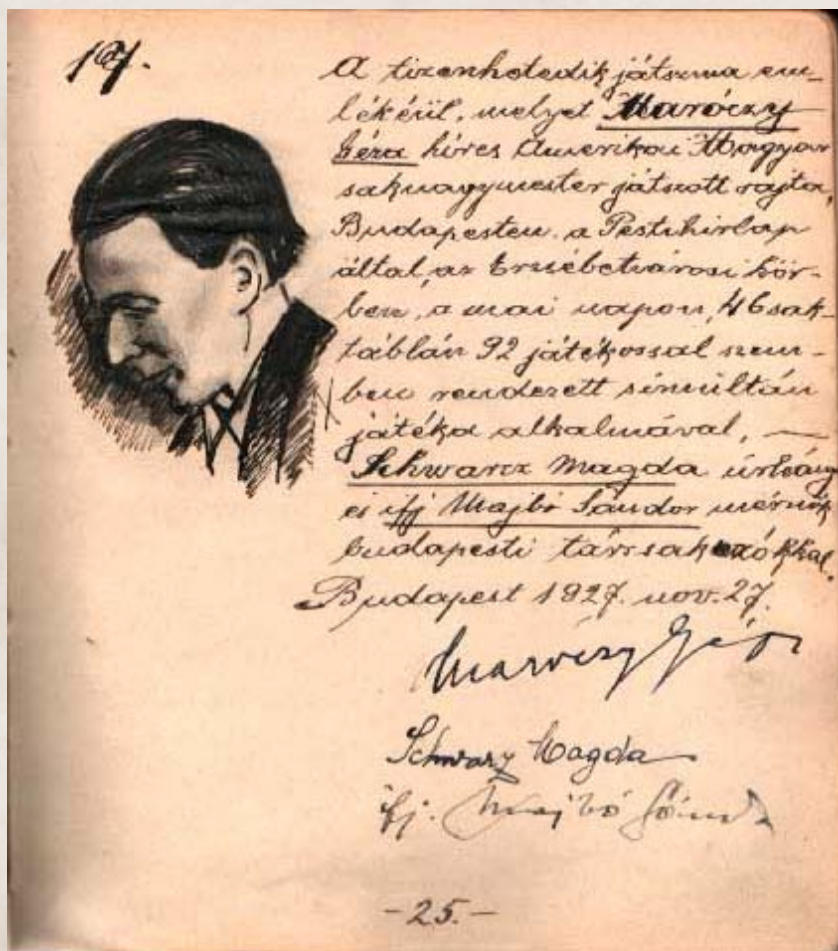 17.
A tizenhetedik játszma em-
lékéül, melyet Maróczy
Géza híres Amerikai Magyar
saknagymester játszott rajta,
Budapesten, a Pestihirlap
által, az Erzsébetvárosi kör-
ben, a mai napon, 46 sak-
táblán 92 játékossal szem-
ben rendezett simultán
játéka alkalmával, —
Schwarcz Magda úrleány
és ifj Majbó Sándor mérnök
budapesti társsakozókkal.
Budapest 1927. nov. 27.
Maróczy Géza
Schwarz Magda
ifj. Majbó Sándor
-25.-